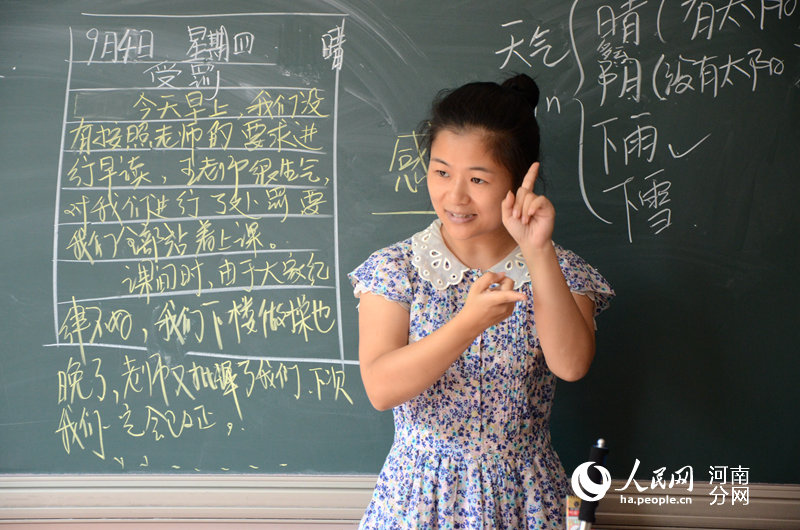 9月4日 星期四 晴
受罚
今天早上，我们没
有按照老师的要求进
行早读，王老师很生气，
对我们进行了处罚要
我们全部站着上课。
课间时，由于大家纪
律不好，我们下楼做操也
晚了，老师又批评了我们．下次
我们一定会改正，
感
天气
晴（有太阳
多云
阴（没有太阳
下雨✓
下雪
人民网 河南
ha.people.cn 分网